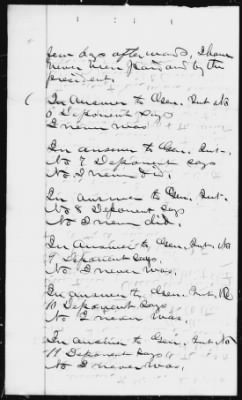 few days afterwards, I have
never been pardoned by the
president.
In Answer to Gen. Int. No
6 Deponent says
I never was
In answer to Gen. Int.
No 7 Deponent says
No I never did.
In answer to Gen. Int.
No 8 Deponent says
No I never did.
In Answer to Gen. Int. No
9 Deponent says.
No I never was.
In answer to Gen. Int. No
10 Deponent says
No I never was.
In answer to Gen. Int. No
11 Deponent says
No I never was.